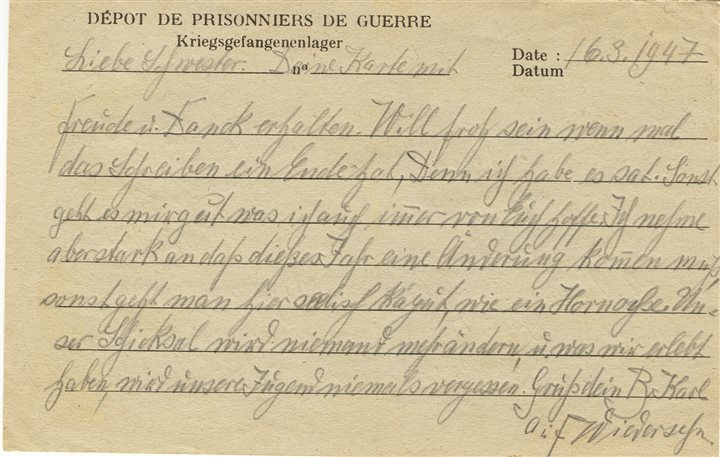 DÉPOT DE PRISONNIERS DE GUERRE
Kriegsgefangenenlager
Liebe Schwester. Deine Karte mit
nº
Date : 16.3.1947
Datum
Freude u. Danck erhalten. Will froh sein wenn mal
das Schreiben ein Ende hat, Denn ich habe es sat. Sonst
geht es mir gut was ich auch immer von Euch hoffe. Ich nehme
aber stark an daß dießes Jahr eine Änderung kommen muß,
sonst geht man hier selisch kaput, wie ein Hornochse. Un=
ser Schicksal wird niemand mehr ändern, u was wir erlebt
haben, wird unsere Jugend niemals vergessen. Grüß dein B. Karl
Auf Wiedersehn.